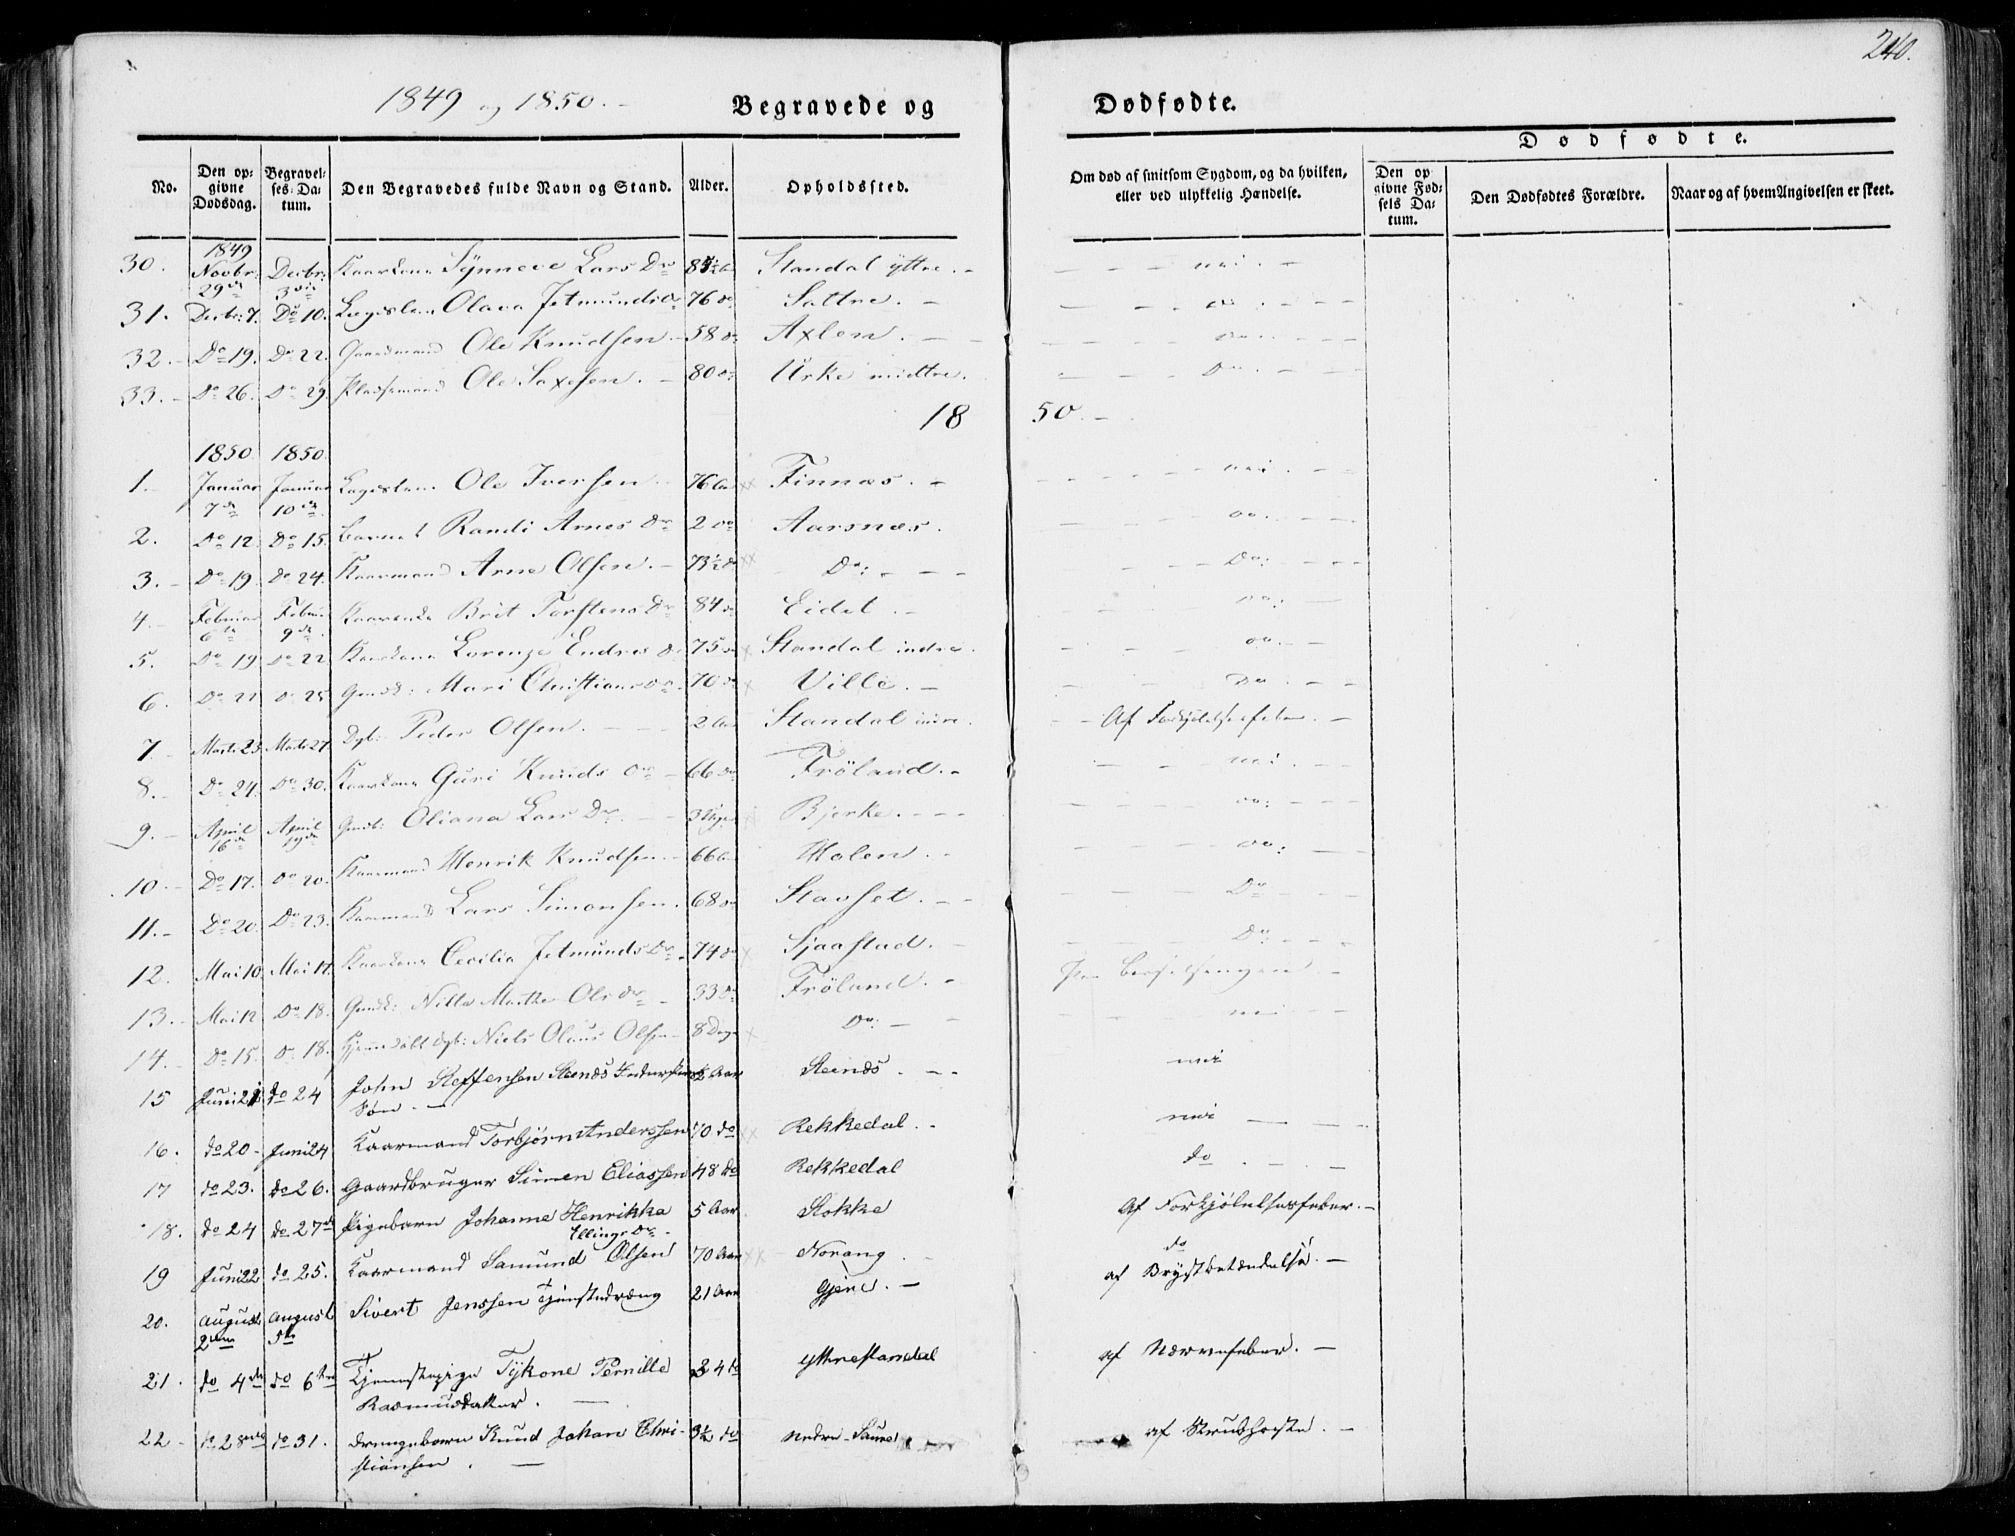 240.
1849 og 1850. -
Begravede og Dødfødte.
Dødfødte.
No. Den opgivne Dødsdag. Begravelses-Datum. Den Begravedes fulde Navn og Stand. Alder. Opholdssted. Om død af smitsom Sygdom, og da hvilken, eller ved ulykkelig Hændelse. Den opgivne Fødsels Datum. Den Dødfødtes Forældre. Naar og af hvem Angivelsen er skeet.
1849
30. Novbr: 29de Decbr: 3die Kaarkone Synneve Lars Dr Standal yttre. - nei. -
31. Decbr: 7. Do 10. Lægdslem Olava Jetmunds Dr 76 do Sattre. - do
32. - Do 19. Do 22. Gaardmand Ole Knudsen. - 58 do Axlen. - do
33. - Do 26. Do 29. Pladsemand Ole Saxesen. - 80 do Urke midtre. Do
1850. -
1850. 1850.
1. - Januar 7de Januar 10de Lægdslem Ole Iversen 76 Aar Finnæs. - nei.
2. Do 12. Do 15. Barnet Randi Arnes Dr 2 do Aarsnæs. do
3. - Do 19. Do 24. Kaarmand Arne Olsen. - 73½ do Do: - Do:
4. - Februar 6te Februar 9de Kaarenke Brit Torstens Dr 84 do Eidet. - do:
5. Do 19 Do 22 Kaarkone Lorenze Endres Dr 75 do Standal indre. do. -
6. Do 21 Do 25 Gmdk: Mari Christians Dr. 70 do Ville. - Do
7 - Marts 23. Marts 27. Dgb: Peder Olsen. - 2 Aar Standal indre. Af Forkjølelsesfeber. -
8. - Do 24. Do 30. Kaarkone Guri Knuds Dr - 66 do Fröland. - nei.
9. - April 16de April 19de Gmdb: Oliana Lars Dr. 3 Uger Bjerke. - do:
10. - Do 17. Do 20. Kaarmand Henrik Knudsen. - 66 Aar Holen. - do:
11. - Do 20. Do 23. Kaarmand Lars Simonsen. 68 do Stavset. - Do
12. Mai 10. Mai 17. Kaarkone Cecilia Jetmunds Dr. 74 do Sjaastad. - Do:
13. - Mai 12 Do 18. Gmdk: Nille Marthe Ols Dr - 33 do Fröland. - Paa Barselsengen. -
14. - Do 15. Do 18. Hjemmedøbt Dgb: Niels Olaus Olsen - 8 Dage Do: - nei
15 Juni 21 do 24 John Steffensen Steinnæs Aar Steinæs. - nei
Søn. -
16. do 20 - Juni 24 Kaarmand Torbjørn Anderssen 70 do Rekkedal. - nei
17 do 23. do 26. Gaardbruger Simen Eliassen 48 do Rekkedal do
18. do 24 do 27de Pigebarn Johanne Henrikka 5 Aar Stokke Af Forkjølelsesfeber. -
Ellings Dr -
19 Juni 22 do 25. Kaarmand Samund Olsen 70 Aar Norang. do
af Brystbetændelse. -
20. August 2den August 5te Sivert Jenssen Tjenestedræng 21 Aar Gjere. -
21. do 4de do 6te Tjenestepige Tykone Pernille 24 do Yttrestandal af Nærvefeber. -
Rasmusdatter. -
22 - do 28 do 31. Drengebarn Knud Johan Chri- 3½ do Nedre-Saure af Strubhoste. -
stiansen. -